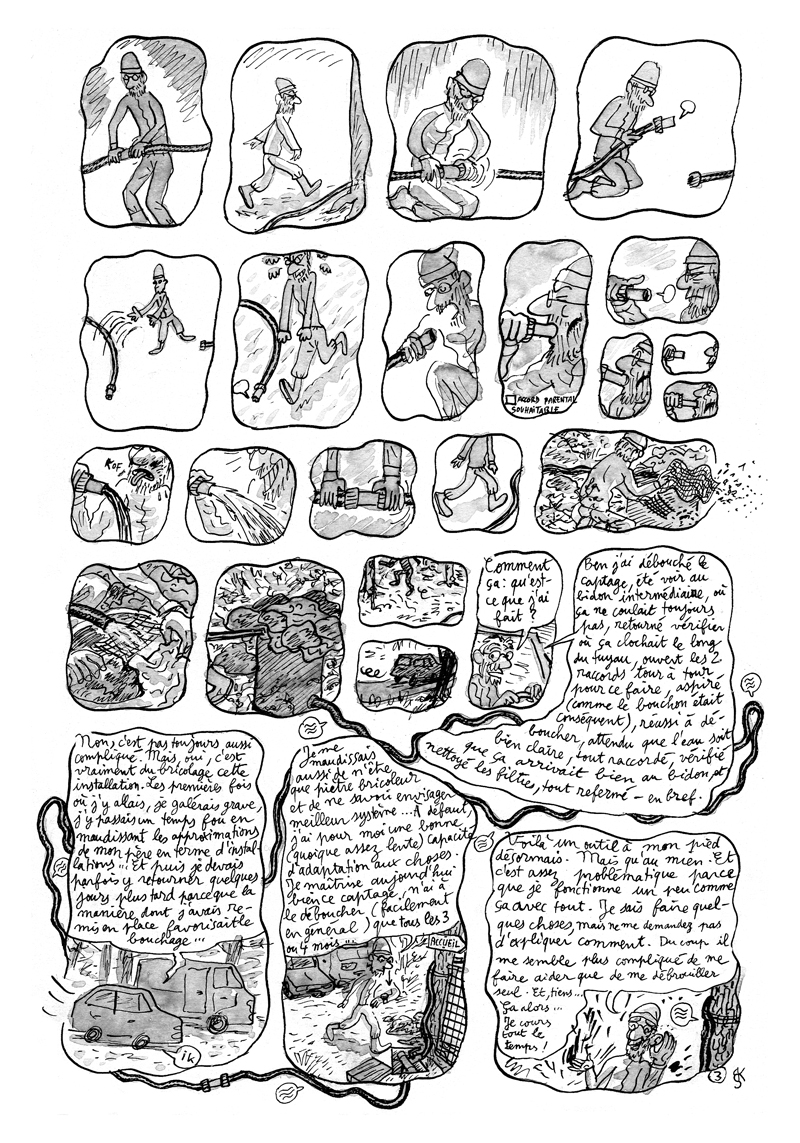 ACCORD PARENTAL
SOUHAITABLE
KOF,
Comment
ça : qu'est-
ce que j'ai
fait ?
Ben j'ai débouché le
captage, été voir au
bidon intermédiaire, où
ça ne coulait toujours
pas, retourné vérifier
où ça clochait le long
du tuyau, ouvert les 2
raccords tour à tour
pour ce faire, aspiré
(comme le bouchon était
conséquent), réussi à dé-
boucher, attendu que l'eau soit
bien claire, tout raccordé, vérifié
que ça arrivait bien au bidon, et
nettoyé les filtres, tout refermé – en bref.
Non, c'est pas toujours aussi
compliqué. Mais, oui, c'est
vraiment du bricolage cette
installation. Les premières fois
où j'y allais, je galérais grave,
j'y passais un temps fou en
maudissant les approximations
de mon père en terme d'instal-
lations... Et puis je devais
parfois y retourner quelques
jours plus tard parce que la
manière dont j'avais re-
mis en place favorisait le
bouchage...
ik
Je me
maudissais
aussi de n'être
que piètre bricoleur
et de ne savoir envisager
meilleur système... À défaut,
j'ai pour moi une bonne
(quoique assez lente) capacité
d'adaptation aux choses.
Je maîtrise aujourd'hui
bien ce captage, n'ai à
le déboucher (facilement
en général) que tous les 3
ou 4 mois...
ACCUEIL
Voilà un outil à mon pied
désormais. Mais qu'au mien. Et
c'est assez problématique parce
que je fonctionne un peu comme
ça avec tout. Je sais faire quel-
ques choses, mais ne me demandez pas
d'expliquer comment. Du coup il
me semble plus compliqué de me
faire aider que de me débrouiller
seul. Et, tiens...
Ça alors...
Je cours
tout le
temps !
3